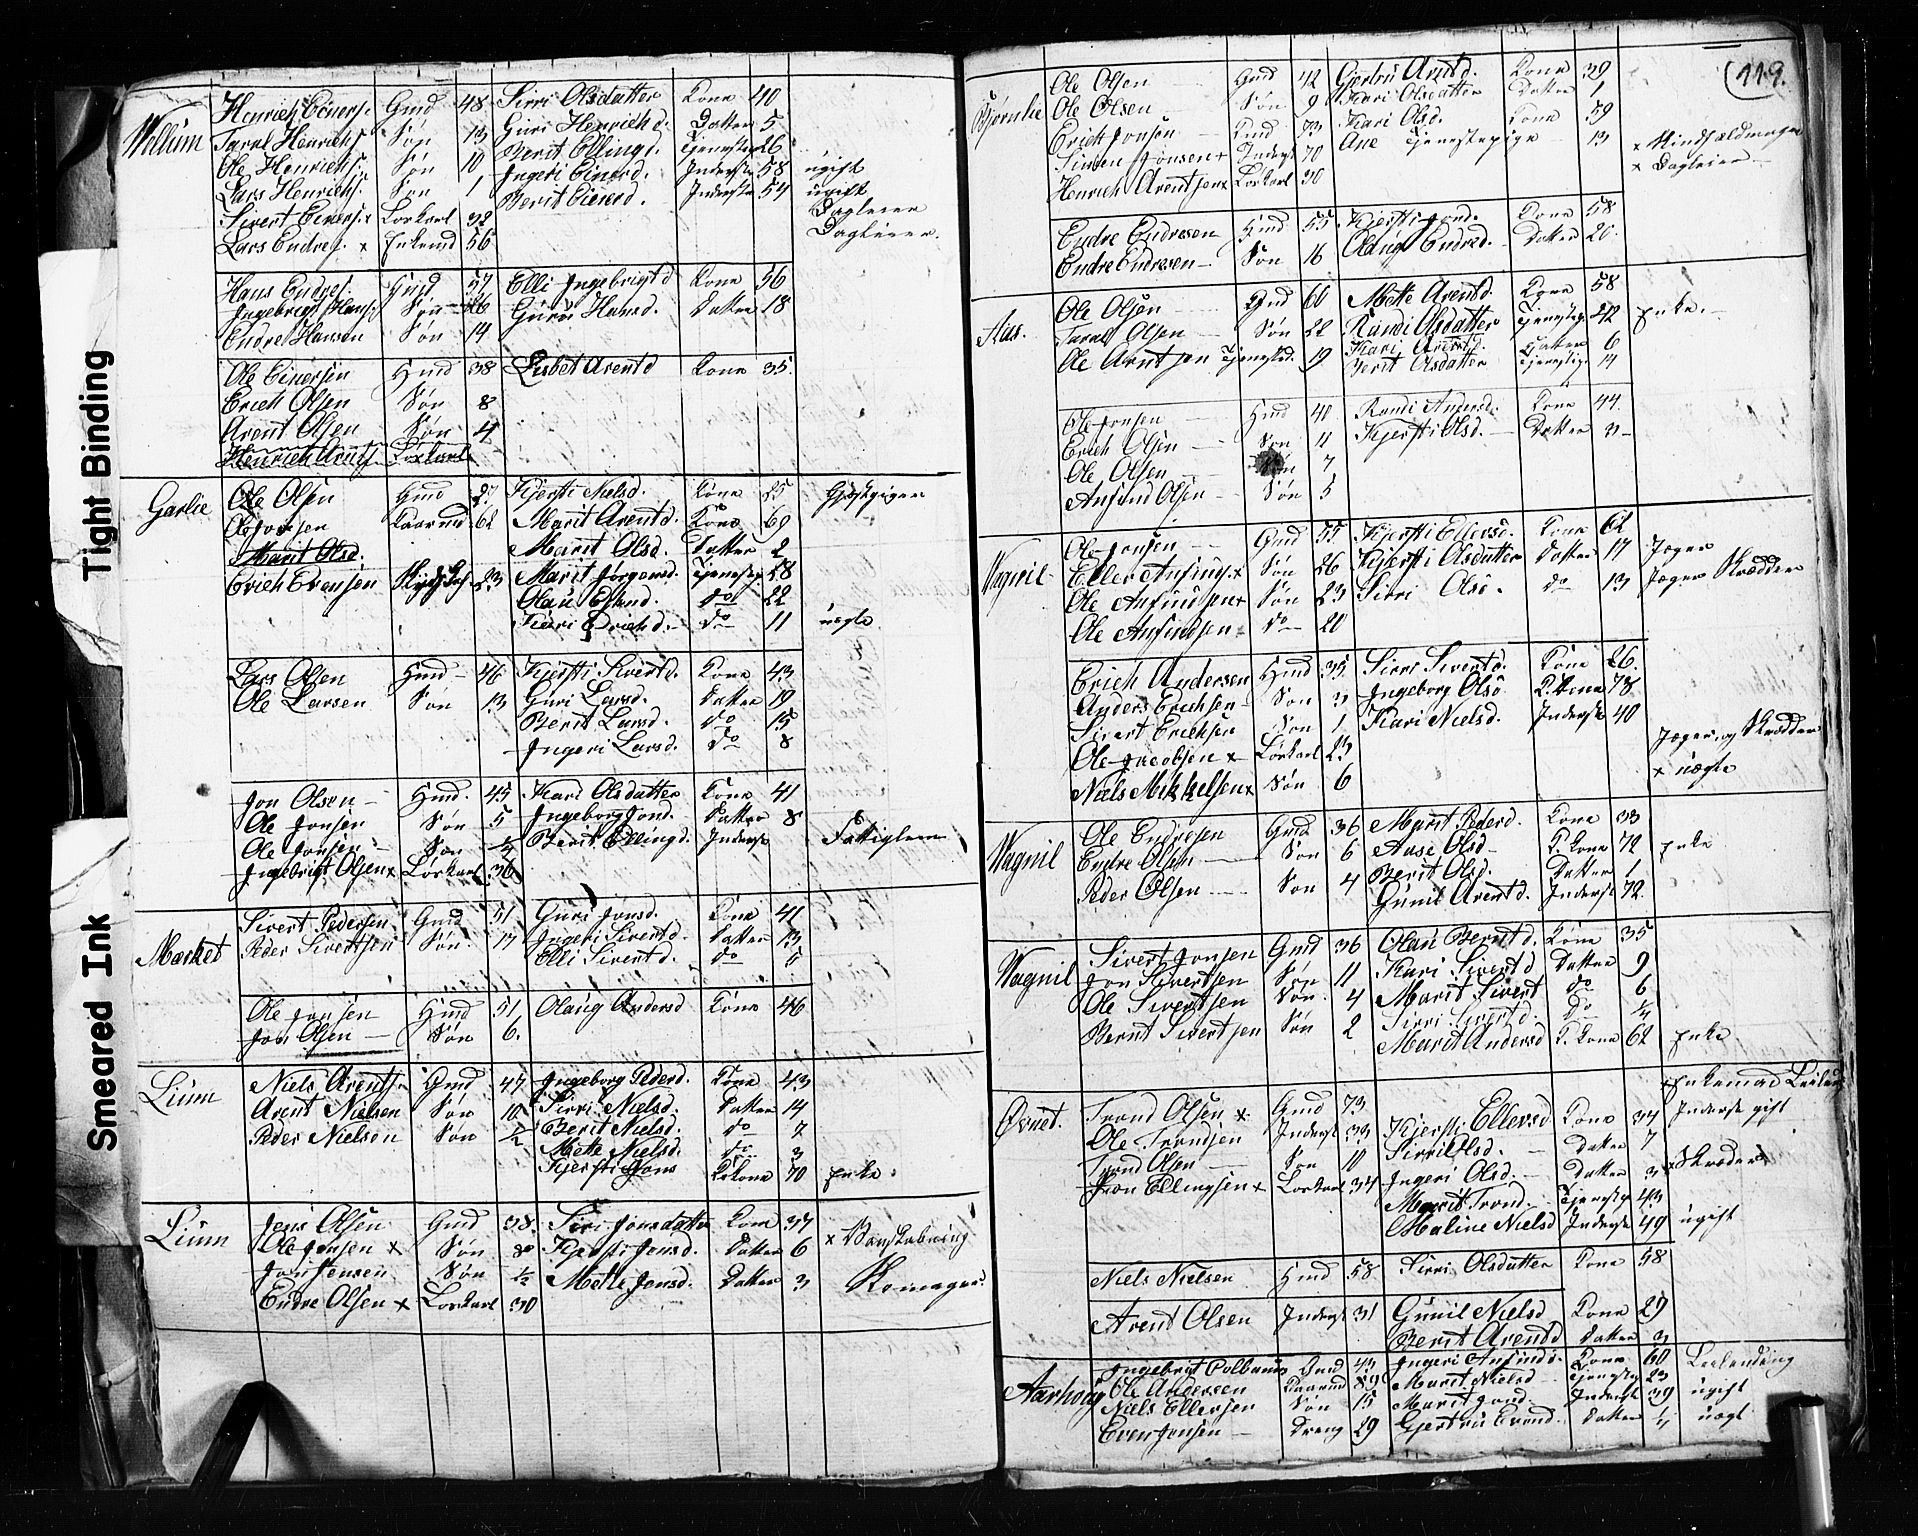 119.
Tight Binding
Smeared Ink
Wollum Henrich Einersf. Gmd 48 Sirri Olsdatter Kona 40
Tarrel Henrichsf. Søn 13 Guri Henrichd. Datter 5
Ole Henrichsf. Søn 10 Berit Ellingd. Tjenestep 26
Lars Henrichsf. Søn 1 Ingeri Einerd. Inderste 58 ugift
Sivert Einersf. x Loskarl 32 Berit Einerd. Inderste 54 ugift Dagleier
Lars Endresf. x Enkemd 56 Dagleier.
Hans Endresf. Hmd 57 Elli Ingebrigtd Kona 56
Ingebrigt Hansf. Søn 26 Guru Hansd. Datter 18
Endre Hansen Søn 14
Ole Einersen Hmd 38 Lisbet Arentd Kona 35.
Erich Olsen Søn 8
Arent Olsen Søn 4
Henrich Arntsf. Loskarl
Garlie Ole Olsen Gmd 27 Kjersti Nielsd. Kona 25
Ole Jonsen Kaarmd 62 Marit Arentd. Kona 69
Marit Olsd. Marit Olsd. Datter 2
Erich Evensen 23 Marit Jørgensd. Tjenestep 28
Olau Eslend. do 22
Kari Erichd. do 11 uægte
Lars Olsen Hmd 46 Kjersti Sivertd. Kona 43
Ole Larsen Søn 13 Guri Larsd. Datter 19
Berit Larsd. do 15
Ingeri Larsd. do 8
Jon Olsen Hmd. 45 Kari Olsdatter Kona 41
Ole Jonsen Søn 5 Ingeborg Jond. Datter 8
Ole Jonsen Søn 1/4 Berit Ellingd. Inderst Fattiglem
Ingebrigt Olsen x Loskarl 36
Market Sivert Pedersen Gmd 51 Guri Jonsd. Kona 41
Peder Sivertsen Søn 17 Ingeri Sivertd. Datter 13
Elli Sivertd. do 5
Ole Jonsen Hmd 51 Olaug Andersd Kona 46
Jon Olsen Søn 6.
Lium Niels Arentsf. Gmd 47 Ingeborg Pederd. Kona 43
Arent Nielsen Søn 10 Sirri Nielsd. Datter 14
Peder Nielsen Søn 1/2 Berit Nielsd. do 7
Mette Nielsd. do 3
Kjersti Jons K.kona 70 Enke.
Lium Jens Olsen Gmd 38. Siri Jonsdatter Kona 37
Ole Jensen x Søn 8 Kjersti Jensd. Datter 6
Jon Jensen Søn 1/2 Mette Jensd. Datter 3 Skomager
Endre Olsen x Loskarl 30
Bjørnlie Ole Olsen Gmd 42 Gertru Arntd. Kona 39
Ole Olsen Søn 9 Kari Olsdatter Datter 1
Erich Jonsen Kmd 73 Kari Olsd. Kona 59
Simen Jonsen x Inderst 70 Ane Tjenestepige 13
Henrich Arentsen x Loskarl 30 x Dagleier
Endre Endresen Hmd 55 Kjersti Jond. Kona 58
Endre Endresen Søn 16 Olaug Endred. Datter 20.
Aas. Ole Olsen Gmd 60 Mette Arentd. Kona 58
Tarrel Olsen Søn 22 Randi Olsdatter Tjenestep. 42 Enke.
Ole Arntsen Tjenested. 19 Kari Arentd. Datter 6
Berit Olsdatter Tjenestep. 14
Ole Jonsen Hmd 40 Randi Anderd. Kona 44
Erich Olsen Søn 4 Kjersti Olsd. Datter 3
Ole Olsen Søn 7
Anfind Olsen Søn 5
Wognil Ole Jonsen Gmd 55 Kjersti Ellersd. Kona 62
Eller Anfinds. x Søn 26 Kjersti Olsdatter Datter 17 Jæger
Ole Anfindsen x Søn 23 Sirri Olsd. do 13 Jæger Skrædder
Ole Anfindsen x do 20
Erich Andersen Hmd 35 Sirri Sivertd. Kona 26.
Anders Erichsen Søn 3 Ingeborg Olsd K.kona 78
Sivert Erichsen Søn 1 Kari Nielsd. Inderste 40
Ole Jacobsen x Loskarl 23 Jæger og Skrædder
Niels Mikkelsen x Søn 6 x uægte
Wognil Ole Endresen Gmd 36 Marit Pederd. Kona 33
Endre Olsen Søn 6 Aase Olsd K.kona 72 Enke
Peder Olsen Søn 4 Berit Olsd. Datter 1
Gunil Arentd. Inderst 72.
Wognil Sivert Jonsen Gmd 36 Olau Berntd. Kona 35
Jon Sivertsen Søn 11 Kari Sivertd Datter 9
Ole Sivertsen Søn. 4 Marit Sivert do 6
Bernt Sivertsen Søn 2 Sirri Sivertd. Do 1/4
Marit Andersd K.kona 62 Enke
Øvnet. Trond Olsen x Gmd 73
Ole Trondsen Inderst 33 Kjersti Ellersd Kona 34 Inderst gift
Trond Olsen Søn 10 Sirri Olsd. Datter 7
Jon Ellingsen x Loskarl 34 Ingeri Olsd. Datter 3 x Skræder
Marit Trond. Tjenestep 43
Maline Nielsd Inderst 49 ugift
Niels Nielsen Hmd 58 Sirri Olsdatter Kona 58
Arent Olsen Inderst 31 Gunil Nielsd Kona 29
Berit Arentd Datter 3
Aarhoug Ingebrigt Gmd 43 Ingeri Anfindd. Kona 60
Ole Andersen Kaarmd 89 Marit Nielsd Tjenestep 23
Niels Ellersen Søn 15 Marit Jond. Inderst 39 ugift
Even Jonsen Dreng 29 Gjertru Evend. Datter 1/4 uægt